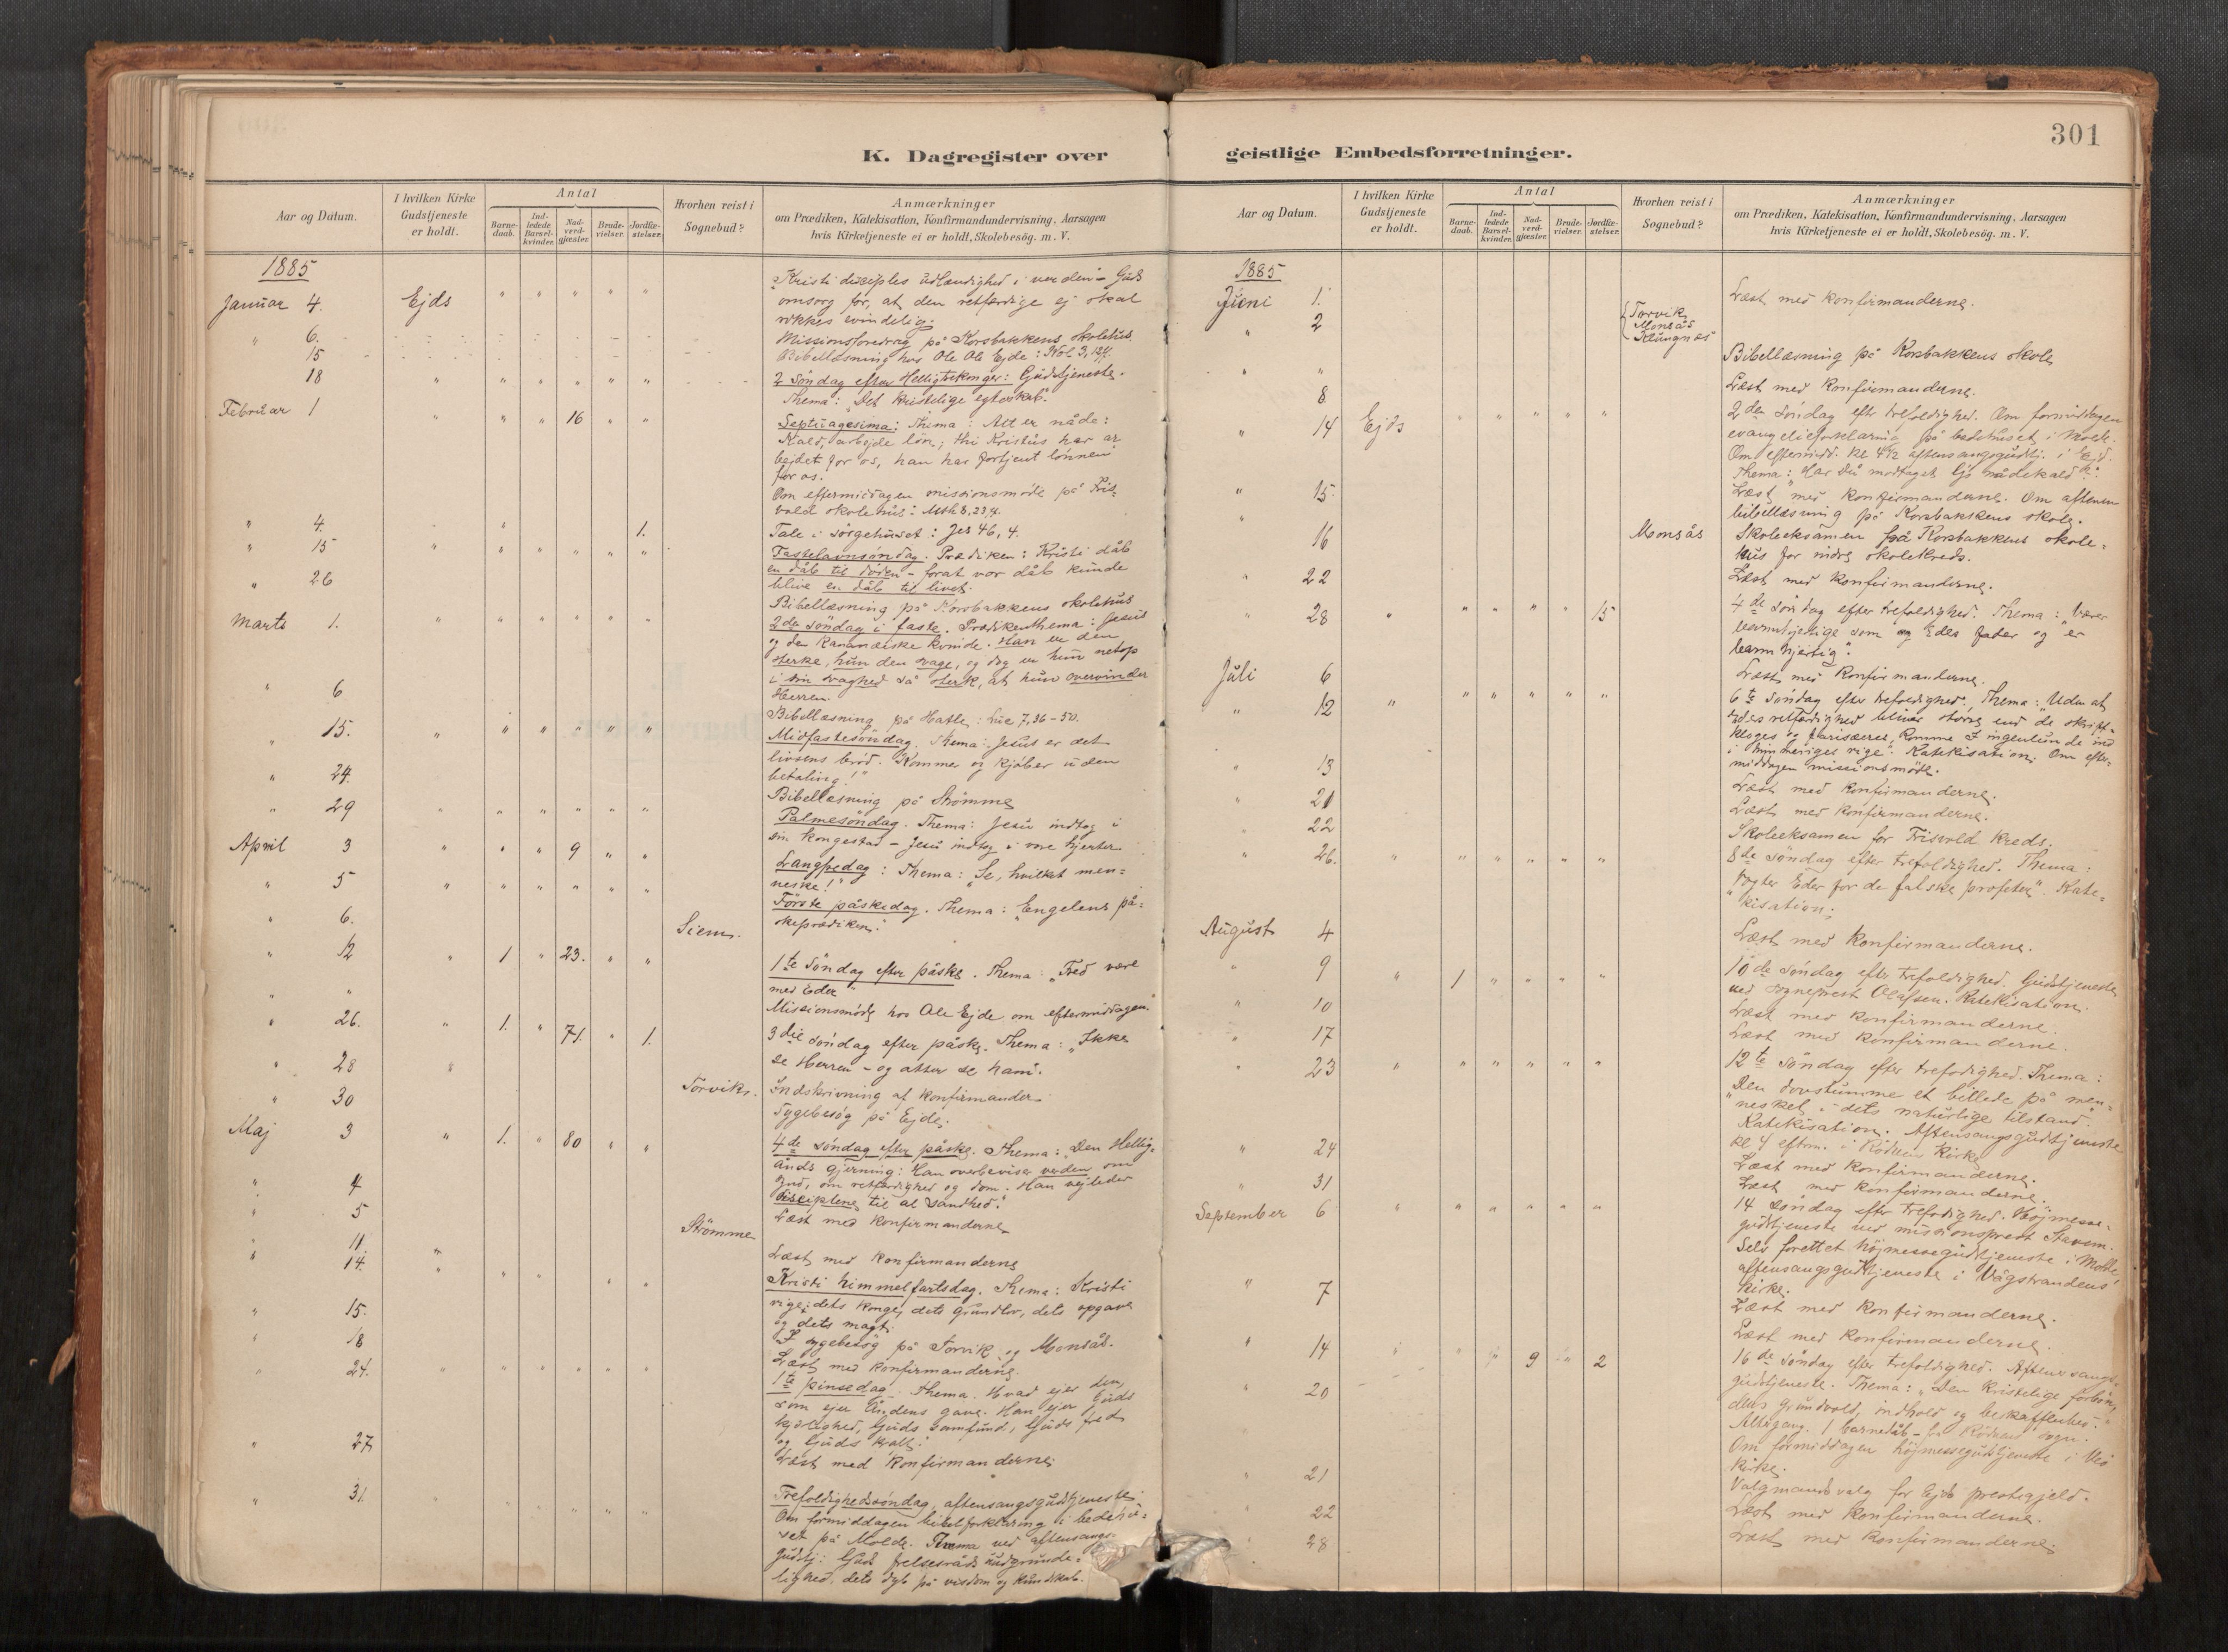 301
K. Dagregister over geistlige Embedsforretninger.
Aar og Datum.
I hvilken Kirke Gudstjeneste er holdt.
Antal
Barne-daab.
Ind-ledede Barsel-kvinder.
Nad-verd-gjæster.
Brude-vielser.
Jordfæ-stelser.
Hvorhen reist i Sognebud?
Anmærkninger
om Prædiken, Katekisation, Konfirmandundervisning, Aarsagen
hvis Kirketjeneste ei er holdt, Skolebesög. m. V.
1885
Januar 4. Ejds " " " " "
Kristi disciples udlændighed i verden - Guds
omsorg for, at den retfærdige ej skal
rokkes evindelig.
" 6. Missionsforedrag på Korsbakkens skolehus
15 Bibellæsning hos Ole Ols Ejde:
18 " " " " " " 2 Söndag efter Helligtrekonger: Gudstjeneste.
Thema: "Det kristelige egteskab".
Februar 1 " " " 16 " " Septuagesima: Thema: Alt er nåde:
Kald, arbejde lön; thi Kristus har ar
bejdet for os, han har fortjent lönnen
for os.
Om eftermiddagen missionsmöde på Fris-
vold skolehus:
" 4. 1. Tale i sörgehuset: Jes 46, 4.
" 15 " " " " " " Fastelavnsöndag. Prædiken: Kristi dåb
en dåb til döden - forat vor dåb kunde
blive en dåb til livet.
" 26 Bibellæsning på Korsbakkens skolehus
Marts 1. " " " " " " 2den söndag i faste. Prædikenthema: Jesus
og den Kananæiske kvinde. Han er den
sterke, hun den svage, og dog er hun netop
i sin svaghed så sterk, at hun overvinder
Herren.
" 6 Bibellæsning på Hatle: Luc 7, 36-50.
" 15. " " " " " " Midfastesöndag. Thema: Jesus er det
livsens bröd. "Kommer og kjöber uden
betaling!"
" 24. Bibellæsning på Strömme
" 29 " " " " " " Palmesöndag. Thema: Jesu indtog i
sin kongestad - Jesu indtog i vore hjerter.
April 3 " " " 9 " " Langfredag: Thema: "Se, hvilket men-
neske!"
" 5 " " " " " " Förste påskedag. Thema: "Engelens på-
skeprædiken."
" 6. Siem.
" 12 " 1 " 23. " " 1te Söndag efter påske. Thema: "Fred være
med Eder"
" " Missionsmöde hos Ole Ejde om eftermiddagen.
" 26. " 1. " 71. " 1. 3die söndag efter påske. Thema: "Ikke
se Herren - og atter se ham".
" 28 " Indskrivning af konfirmander.
" 30 Torvik. Sygebesög på Ejde.
Maj 3 " 1. " 80 " " 4de söndag efter påske. Thema: "Den Hellig-
ånds gjerning: Han overbeviser verden om
synd, om retfærdighed og dom. Han vejleder
disciplene til al sandhed."
" 4 Læst med konfirmanderne
" 5 Strömme
" 11. " Læst med konfirmanderne
" 14. " " " " " Kristi himmelfartsdag. Thema: Kristi
rige; dets konge, dets grundlov, dets opgave
og dets magt.
" 15. I sygebesög på Torvik og Monsås.
" 18 Læst med konfirmanderne.
" 24. " " " " " " 1te pinsedag. Thema. Hvad ejer den,
som ejer Åndens gave. Han ejer Guds
kjærlighed, Guds samfund, Guds fred
og Guds kraft."
" 27. Læst med konfirmanderne.
" 31. " " " " " " Trefoldighedssöndag, aftensangsgudstjeneste
Om formiddagen bibelforklaring i bedehu-
set på Molde. Thema ved aftensangs-
gudstj: Guds frelsesråds uudgrunde-
lighed, dets dyb på visdom og kundskab.
Aar og Datum.
I hvilken Kirke Gudstjeneste er holdt.
Antal
Barne-daab.
Ind-ledede Barsel-kvinder.
Nad-verd-gjæster.
Brude-vielser.
Jordfæ-stelser.
Hvorhen reist i Sognebud?
Anmærkninger
om Prædiken, Katekisation, Konfirmandundervisning, Aarsagen
hvis Kirketjeneste ei er holdt, Skolebesög. m. V.
1885
Juni 1. Læst med konfirmanderne.
" 2 Torvik
Monsås
Klungnes
" " Bibellæsning på Korsbakkens skole
8 Læst med konfirmanderne.
" 14 Ejds " " " " " 2den söndag eft trefoldighed. Om formiddagen
evangelieforklaring på bedehuset i Molde.
Om eftermidd. kl 4½ aftensangsgudstj. i Ejd.
Thema: "Har Du modtaget Gs nådekald?".
" 15. Læst med konfirmanderne. Om aftenen
bibellæsning på Korsbakkens skole.
" 16 Monsås Skoleeksamen på Korsbakkens skole-
hus for indre skolekreds.
" 22 Læst med konfirmanderne.
" 28 " " " " " 15 4de söndag efter trefoldighed. Thema: "Værer
barmhjertige som og Eders fader og er
barmhjertig".
Juli 6 Læst med konfirmanderne.
" 12 " " " " " " 6te söndag efter trefoldighed. Thema: "Uden at
Eders retfærdighed bliver större end de skrift-
kloges og farisæeres, komme I ingenlunde ind
i himmeriges rige". Katekisation. Om efter-
middagen missionsmöde.
" 13 Læst med konfirmanderne.
" 21 Læst med konfirmanderne.
" 22 Skoleeksamen for Frisvold kreds.
" 26. " " " " " " 8de söndag efter trefoldighed. Thema:
"Vogter Eder for de falske profeter". Kate-
kisation.
August 4 Læst med konfirmanderne.
" 9 " 1 " " " " 10de söndag efter trefoldighed. Gudstjeneste
ved sogneprest Olafsen. Katekisation.
" 10 Læst med konfirmanderne.
" 17 Læst med konfirmanderne.
" 23 " " " " " " 12te söndag efter trefoldighed. Thema:
"Den dovstumme et billede på men-
nesket i dets naturlige tilstand".
Katekisation. Aftensangsgudstjeneste
kl 4 eftm. i Rödven kirke
" 24 Læst med konfirmanderne.
" 31 Læst med konfirmanderne.
September 6 " " " " " " 14 söndag efter trefoldighed. Höjmesse-
gudstjeneste ved missionsprest Stavem.
Selv forettet höjmessegudstjeneste i Molde
aftensangsgudstjeneste i Vågstrandens
kirke.
" 7 Læst med konfirmanderne.
" 14 Læst med konfirmanderne.
" 20 " " " 9 " 2 16de söndag efter trefoldighed. Aftensangs-
gudstjeneste. Thema: "Den kristelige forbön,
dens grundvold, indhold og beskaffenhed."
Altergang. 1 barnedåb - fra Rödven sogn.
Om formiddagen höjmessegudstjeneste i Veö
kirke.
" 21 Valgmandsvalg for Ejds prestegjeld.
" 22 Læst med konfirmanderne.
" 28 Læst med konfirmanderne.